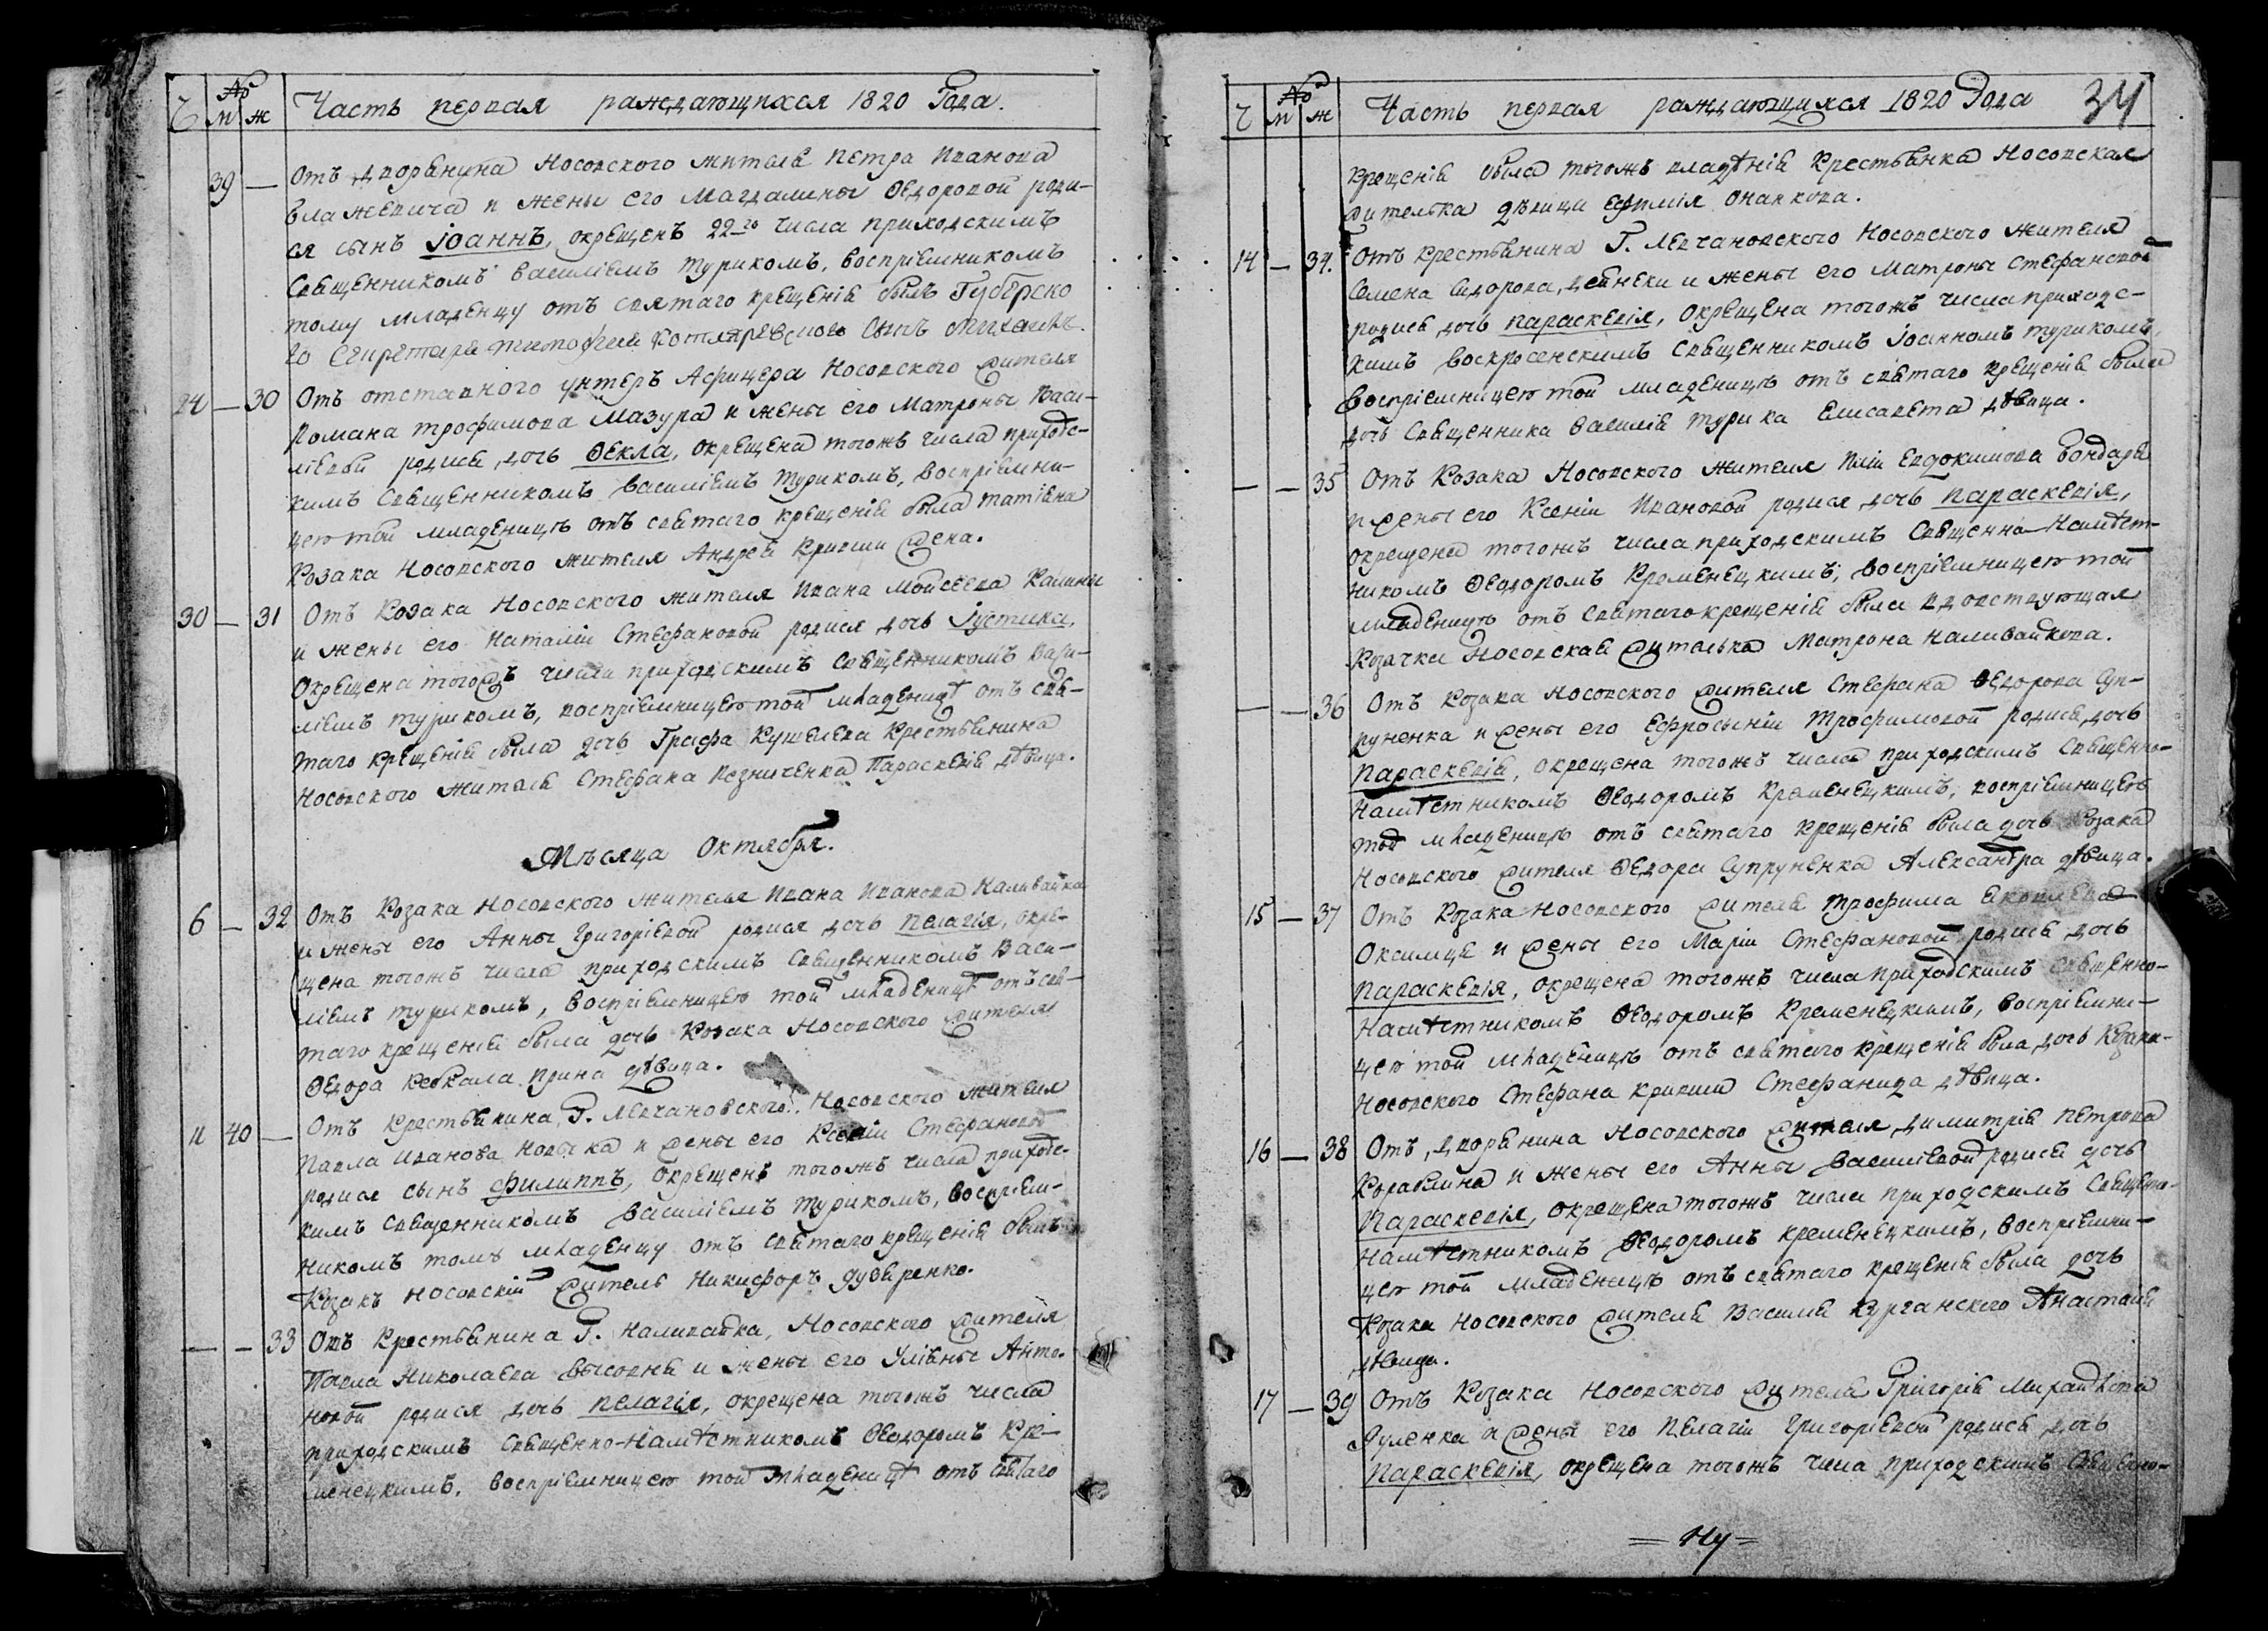 Ч № м ж Часть первая раждающихся 1820 Года.
39 — Отъ дворянина Носовского жителя Петра Иванова
Влажевича и жены его Магдалины Ѳедоровой роди-
ся сынъ Іоаннъ, окрещенъ 22-го числа приходскимъ
Священникомъ Василіемъ Турикомъ, воспріемникомъ
тому младенцу отъ святаго крещенія былъ Губерско
го Секретаря Тимофея Котляревсково Сынъ Михаилъ.
24 — 30 Отъ отставного унтеръ Афицера Носовского жителя
Романа Трофимова Мазура и жены его Матроны Васи-
ліевой родися дочь Ѳекла, окрещена тогожъ числа приходс-
кимъ Священникомъ Василіемъ Турикомъ, Воспріемни-
цею той младеницѣ отъ святаго крещенія была Татіяна
Козака Носовского жителя Андрея Кривши жена.
30 — 31 Отъ Козака Носовского жителя Ивана Мойсеева Калины
и жены его Наталіи Стефановой родися дочь Іустина,
Окрещена тогожъ числа приходскимъ Священникомъ Васи-
ліемъ Турикомъ, воспріемницею той младеницѣ отъ свя-
таго крещенія была дочь Графа Кушелева Крестьянина
Носовского жителя Стефана Резниченка Параскевія дѣвица.
Мѣсяца Октября.
6 — 32 Отъ Козака Носовского жителя Ивана Иванова Наливайка
и жены его Анны Григоріевой родися дочь Пелагія, окре-
щена тогожъ числа приходскимъ Священникомъ Васи-
ліемъ Турикомъ, Воспріемницею той младеницѣ отъ свя-
таго крещенія была дочь Козака Носовского жителя
Ѳедора Кебкала Ирина дѣвица.
11 40 — Отъ Крестьянина Г. Левчановского Носовского жителя
Павла Иванова Новчка и жены его Ксеніи Стефановой
родися сынъ Филиппъ, окрещенъ тогожъ числа приходс-
кимъ священникомъ Василіемъ Турикомъ, воспріем-
никомъ тому младенцу отъ святаго крещенія былъ
Козакъ Носовскій житель Никифоръ
— — 33 Отъ Крестьянина Г. Наливайка, Носовского жителя
Павла Николаева Высовня и жены его Уліяны Анто-
новой родися дочь Пелагія, окрещена тогожъ числа
приходскимъ Священно-Намѣстникомъ Ѳеодоромъ Кре-
менецкимъ, воспріемницею той младеницѣ отъ святаго
Ч № м ж Часть первая раждающихся 1820 Года 34
крещенія была тогожъ владѣнія Крестьянка Носовская
жителька дѣвица Ефимія Онавкова.
14 — 34. Отъ Крестьянина Г. Левчановского Носовского жителя
Семена Сидорова Дейнеки и жены его Матроны Стефановой
родися дочь Параскевія, окрещена тогожъ числа приходс-
кимъ Воскресенскимъ Священникомъ Іоанномъ Турикомъ,
Воспріемницею той младеницѣ отъ святаго крещенія была
дочь Священника Василія Турика Елисавета дѣвица.
— — 35 Отъ Козака Носовского жителя Иліи Евдокимова Бондаря
и жены его Ксеніи Ивановой родися дочь Параскевія,
окрещена тогожъ числа приходскимъ Священно-Намѣст-
никомъ Ѳеодоромъ Кременецкимъ, Воспріемницею той
младеницѣ отъ Святаго крещенія была вдовствующая
Козачка Носовская жителька Матрона Наливайкова.
— — 36 Отъ Козака Носовского жителя Стефана Ѳедорова Суп-
руненка и жены его Ефросыніи Трофимовой родися дочь
Параскевія, окрещена тогожъ числа приходскимъ Священно-
Намѣстникомъ Ѳеодоромъ Кременецкимъ, воспріемницею
той младеницѣ отъ святаго крещенія была дочь Козака
Носовского жителя Ѳедора Супруненка Александра дѣвица.
15 — 37 Отъ Козака Носовского жителя Трофима Яковлева
Оксимца и жены его Маріи Стефановой родися дочь
Параскевія, окрещена тогожъ числа приходскимъ Священно-
Намѣстникомъ Ѳеодоромъ Кременецкимъ, Воспріемни-
цею той младеницѣ отъ святаго крещенія была дочь Козака
Носовского Стефана Кривши Стефанида дѣвица.
16 — 38 Отъ дворянина Носовского жителя Димитрія Петрова
Кораблина и жены его Анны Василіевой родися дочь
Параскевія, окрещена тогожъ числа приходскимъ Священно-
Намѣстникомъ Ѳеодоромъ Кременецкимъ, Воспріемни-
цею той младеницѣ отъ святаго крещенія была дочь
Козака Носовского жителя Василія Курганского Анастасія
дѣвица.
17 — 39 Отъ Козака Носовского жителя Григорія Михайлова
Яуленка и жены его Пелагіи Григоріевой родися дочь
Параскевія, окрещена тогожъ числа приходскимъ Священно-